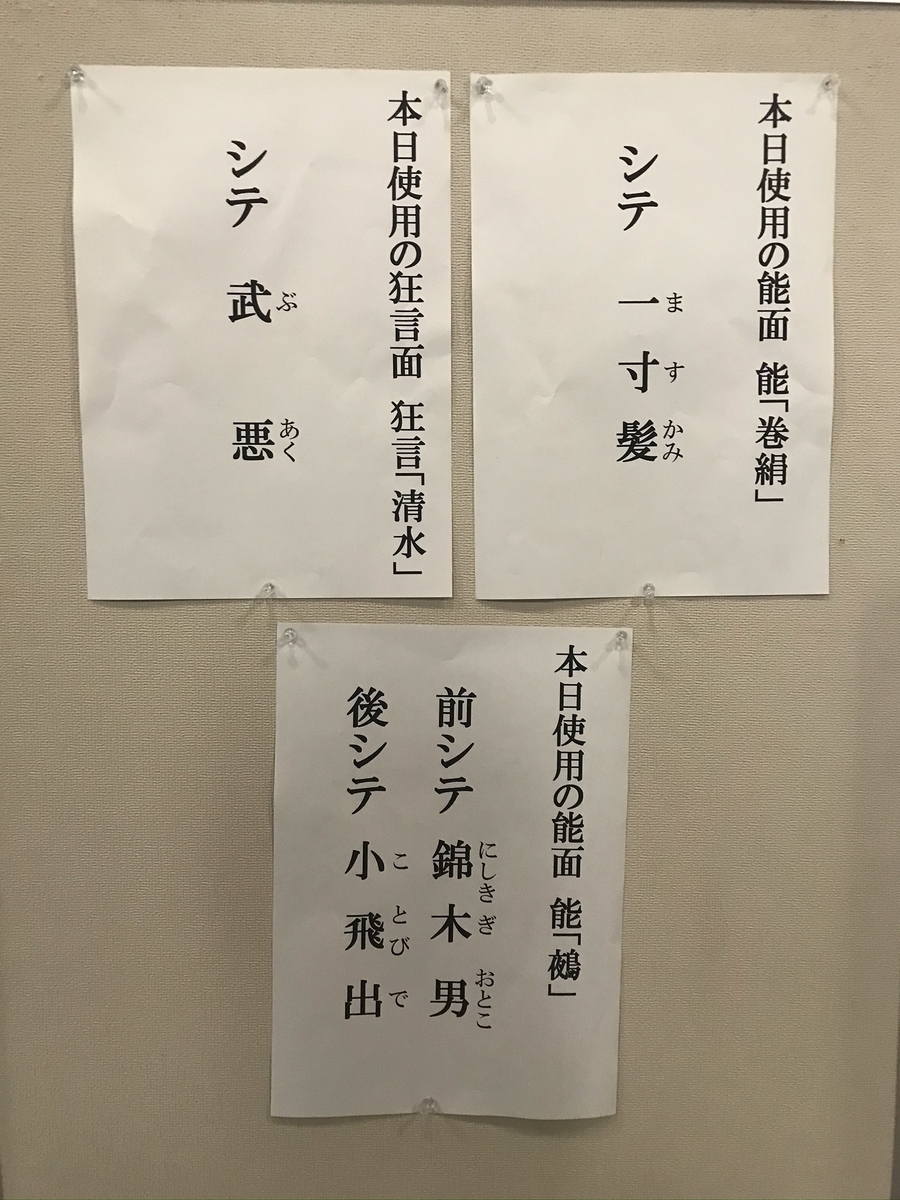 本日使用の能面 能「巻絹」
シテ 一寸髪
ま す かみ
本日使用の狂言面 狂言「清水」
シテ 武悪
ぶ あく
本日使用の能面 能「鵺」
前シテ 錦木男
にしき ぎ おとこ
後シテ 小飛出
こ とび で